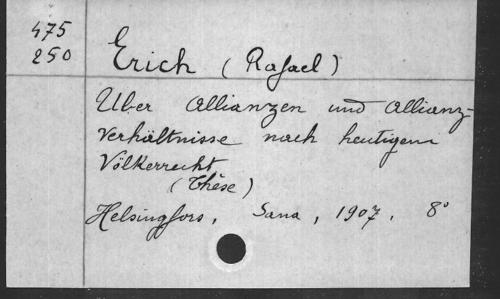 475
250
Erich (Rafael)
Uber Allianzen und Allianz-
verhältnisse nach heutigem
Völkerrecht
(Thèse)
Helsingfors, Sana, 1907, 8°